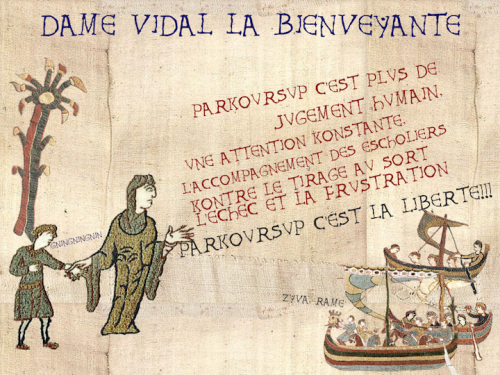 DAME VIDAL LA BIENVEYANTE
PARKOVRSVP C'EST PLVS DE
JVGEMENT HVMAIN,
VNE ATTENTION KONSTANTE,
L'ACCOMPAGNEMENT DES ESCHOLIERS
KONTRE LE TIRAGE AV SORT
L'ECHEC ET LA FRVSTRATION
PARKOVRSVP C'EST LA LIBERTE!!!
GNINGNINGNIN
ZYVA RAME